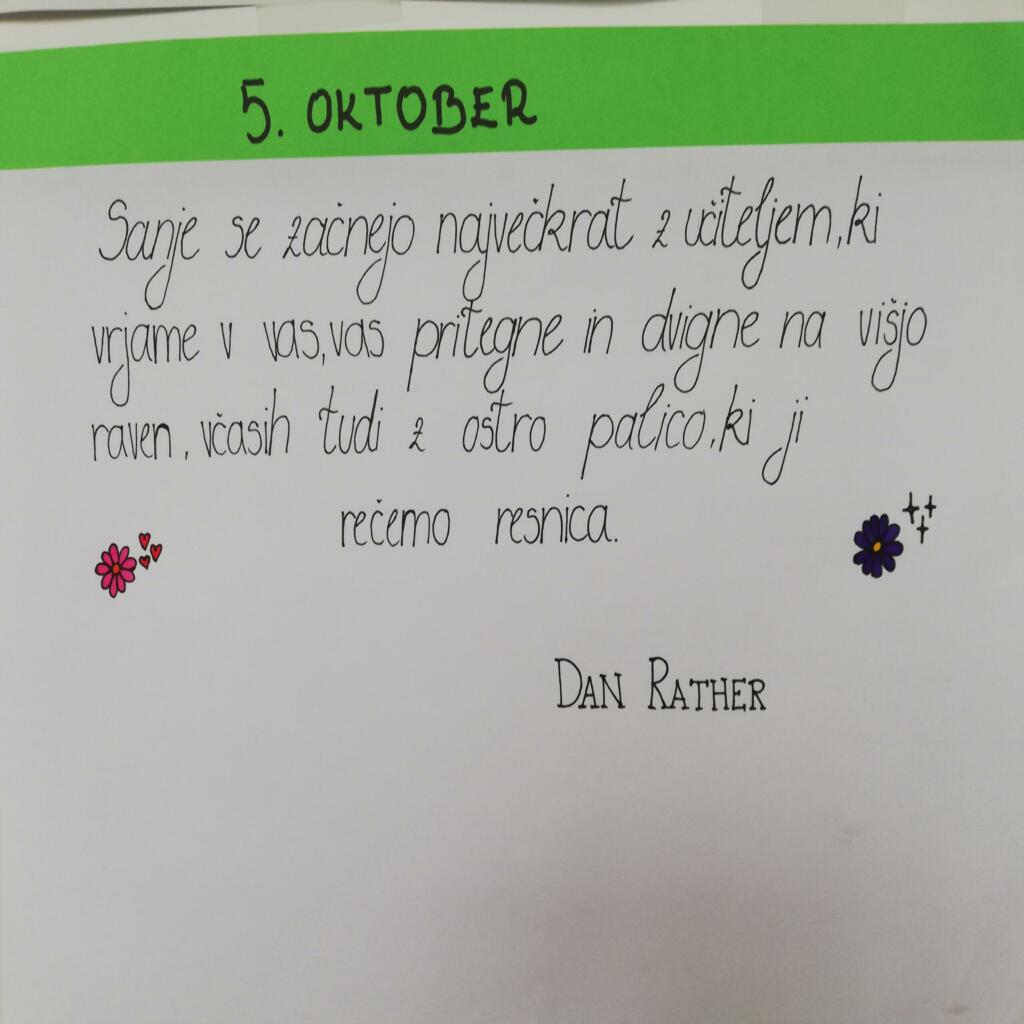 5. OKTOBER
Sanje se začnejo največkrat z učiteljem, ki
vrjame v vas, vas pritegne in dvigne na višjo
raven, včasih tudi z ostro palico, ki ji
rečemo resnica.
DAN RATHER